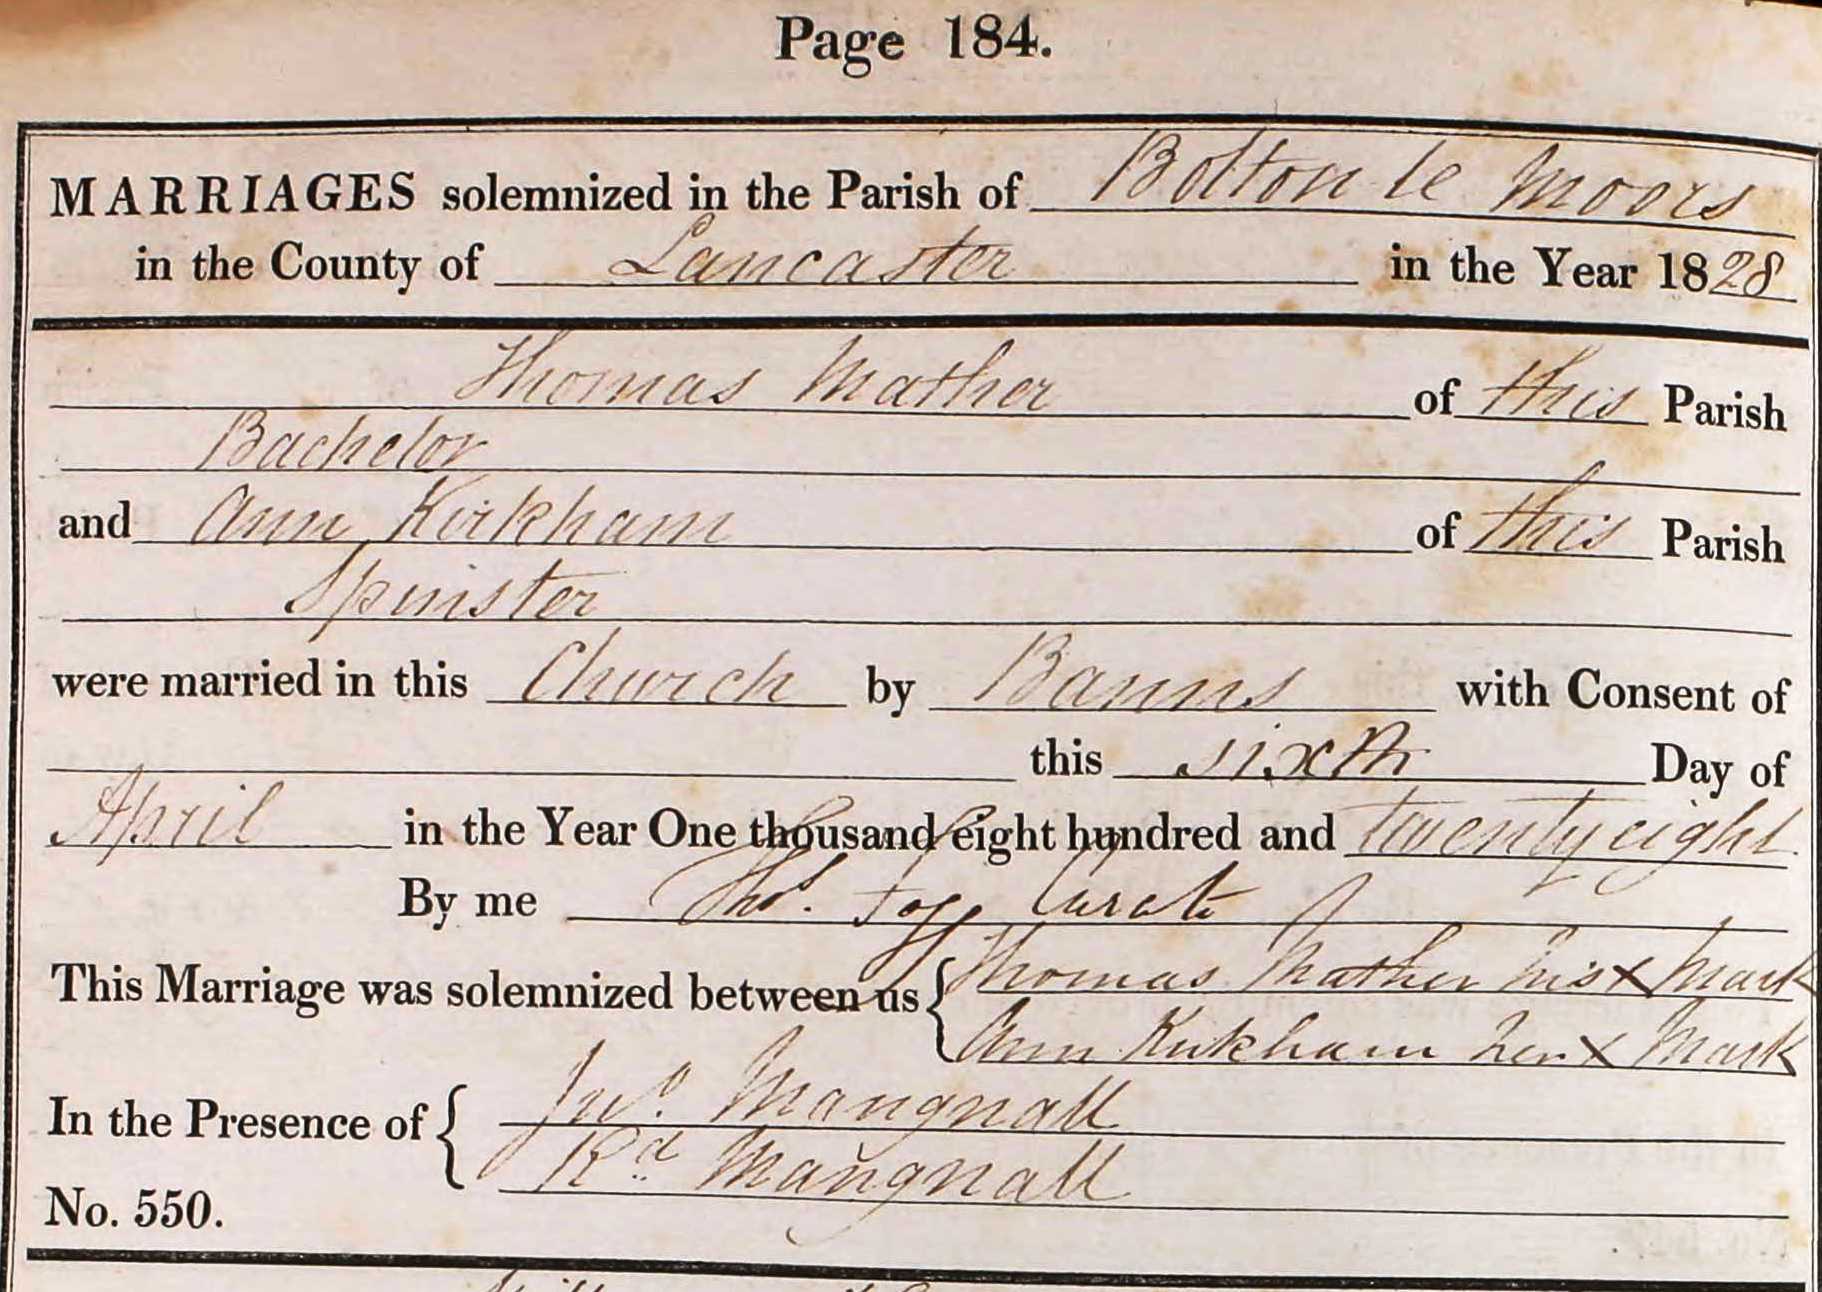 Page 184.
MARRIAGES solemnized in the Parish of Bolton le Moors
in the County of Lancaster in the Year 1828
Thomas Mather of this Parish
Bachelor
and Ann Kirkham of this Parish
Spinster
were married in this Church by Banns with Consent of
this sixth Day of
April in the Year One thousand eight hundred and twenty eight
By me Thos. Fogg Curate
This Marriage was solemnized between us { Thomas Mather his X Mark
Ann Kirkham her X Mark
In the Presence of { Jno. Mangnall
Rd. Mangnall
No. 550.